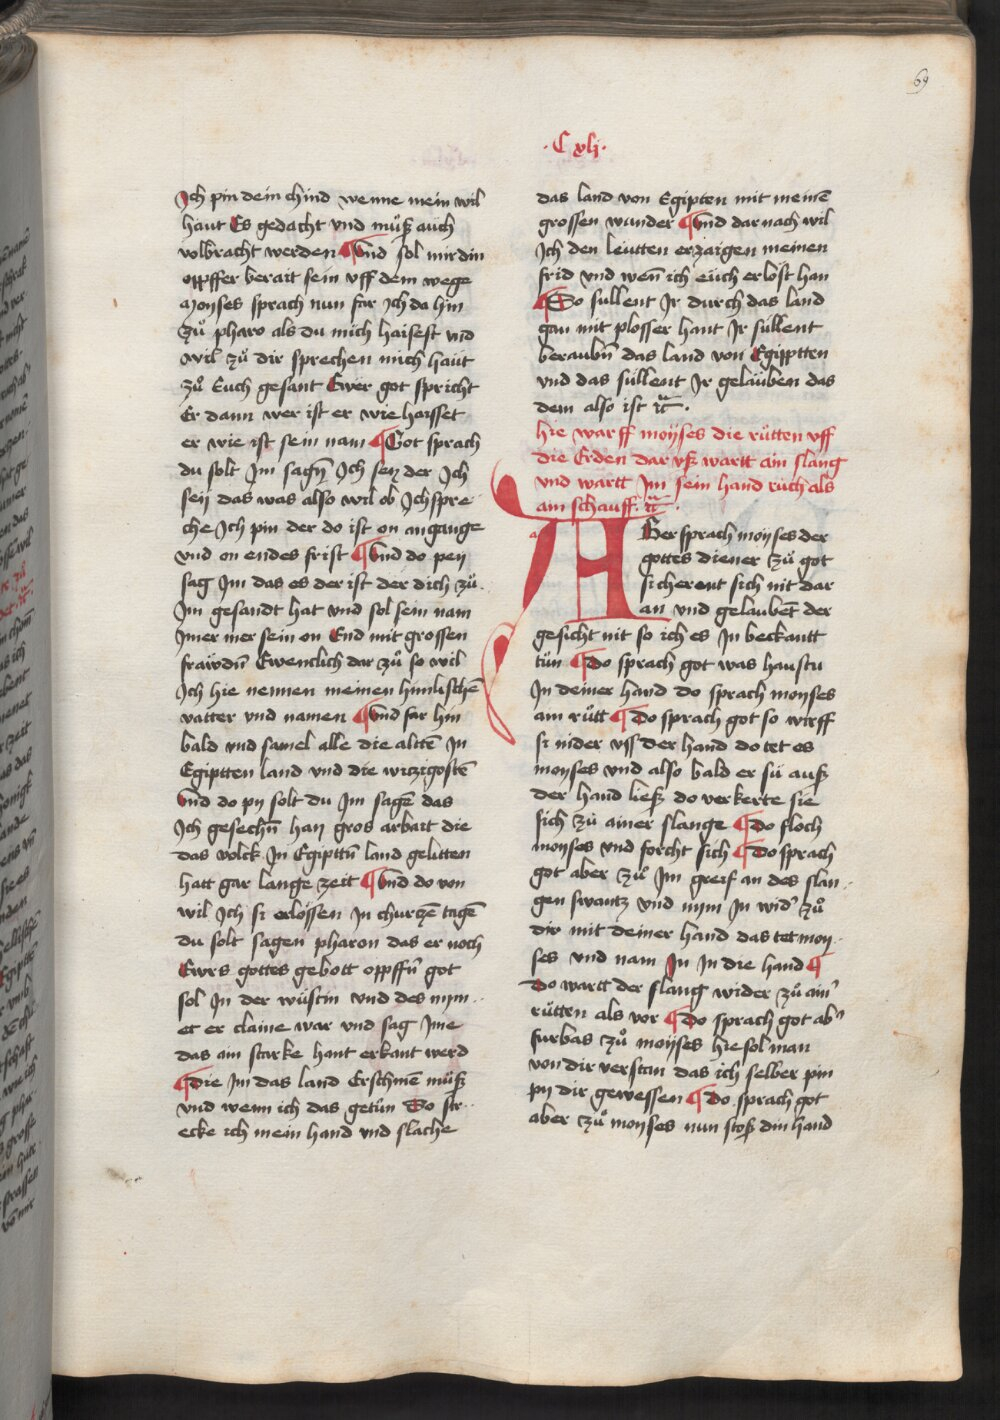 69
· C xlj ·
Ich pin dein chind wenne mein wil
haut Es gedacht vnd můß auch
volbracht werden ¶ Vnd sol mir din
opffer berait sein vff dem wege
Moyses sprach nun far Ich da hin
zů pharo als du mich haisest vnd
wil zů dir sprechen mich haut
zů Euch gesant Ewer got spricht
Er dann wer ist er wie haisset
er wie ist sein nam ¶ Got sprach
du solt Im sagn̄ Ich sey der Ich
sey das was also wil ob Ich spre
che Ich pin der do ist on angange
vnd on endes frist ¶ Vnd do pey
sag Im das es der ist der dich zů
Im gesandt hat vnd sol sein nam
Imer mer sein on End mit grossen
fraẅdn̄ Ewenclich dar zů so wil
Ich hie nennen meinen himlischē
vatter vnd namen ¶ Vnd far hin
bald vnd samel alle die alttē In
Egiptten land vnd die witzigostē
Vnd do py solt du Im sagē das
Ich gesechn̄ han gros arbait die
das volck In Egipttn̄ land gelitten
hatt gar lange zeit ¶ Vnd do von
wil Ich si erlössen In churczē tagē
du solt sagen pharon das er noch
Ewrs gottes gebott opffn̄ got
sol In der wüstin vnd des nym
et er claine war vnd sag Ime
das ain starke hant erkant werd
¶ die Im das land Erschinē müß
vnd wenn ich das getün So str
ecke ich mein hand vnd slache
das land von Egipten mit meinē
grossen wunder ¶ Vnd dar nach wil
Ich den leutten erzaigen meinen
frid vnd wen̄ ich eüch erlöst han
¶ So sullent Ir durch das land
gan mit plosser hant Ir süllent
beraubn̄ das land von Egipptten
vnd das süllent Ir gelauben das
dem also ist ꝛc̄ .
hie warff moyses die rütten vff
die Erden dar vß wartt ain slang
vnd wartt Im sein hand ruch als
ain schauff. ꝛc̄ .
a
AHer sprach moyses der
gottes diener zů got
si cherent sich nit dar
an vnd gelaubēt der
gesicht nit so ich es In beckantt
tün ¶ do sprach got was haustu
In deiner hand do sprach moyses
ain rütt ¶ Do sprach got so wirff
si nider vss der hand do tet es
moyses vnd also bald er sü auß
der hand ließ do verkerte sie
sich zů ainer slange ¶ Do floch
moyses vnd forcht sich ¶ Do sprach
got aber zů Im greif an des slan
gen swantz vnd nym In wid' zů
dir mit deiner hand das tet moy
ses vnd nam In In die hand ¶
Do wartt der slang wider zů ain'
rütten als vor ¶ Do sprach got ab'
furbas zů moyses hie sol man
von dir verstan das ich selber pin
py dir gewessen ¶ Do sprach got
aber zů moyses nun stoß din hand